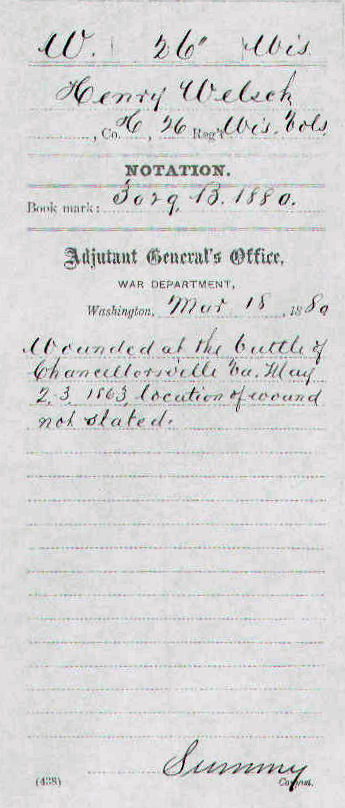 W. | 26" | Wis
Henry Welsch
, Co. K, 26 Reg't Wis. Vols.
NOTATION.
Book mark: B. 1880.
Adjutant General's Office,
WAR DEPARTMENT,
Washington, Mar 18, 1880
Wounded at the battle of
Chancellorsville Va. May
2, 3, 1863, location of wound
not stated.
Summy
(438) Copyist.